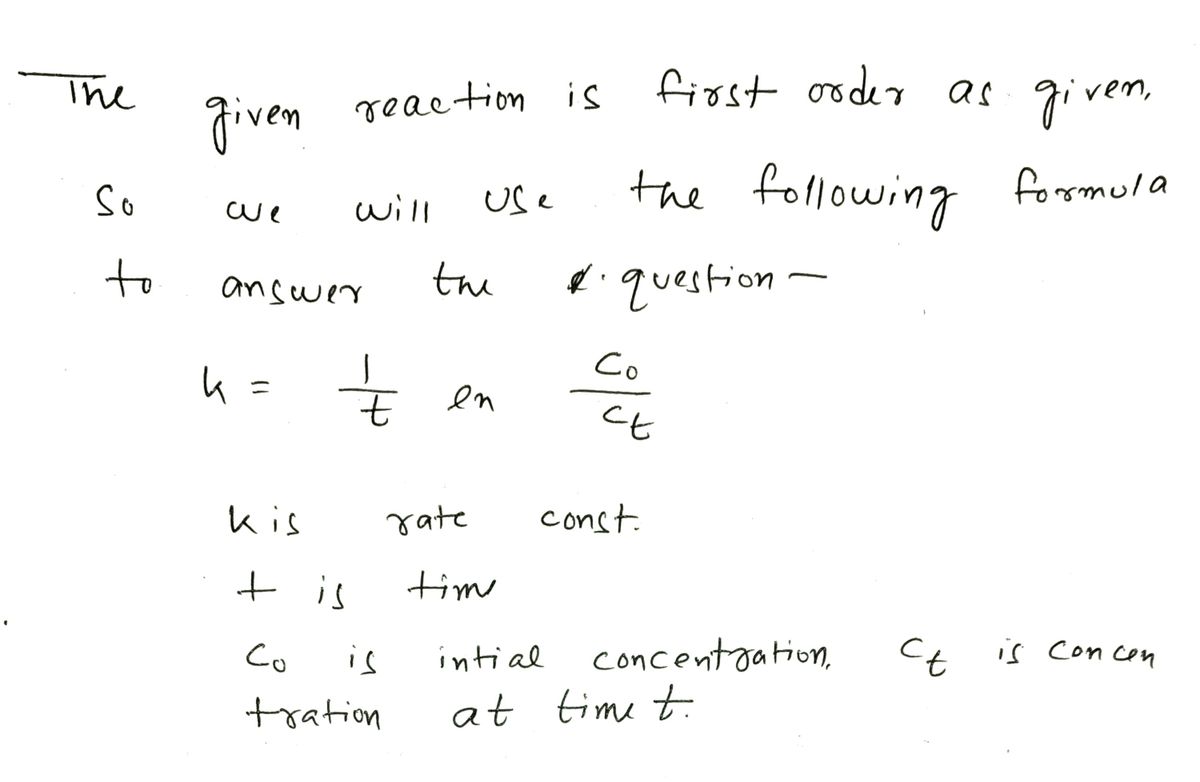 The given reaction is first order as given,
So we will use the following formula
to answer the question –
k = 1/t ln C₀/Cₜ
k is rate const.
t is time
C₀ is intial concentration, Cₜ is concen
tration at time t.